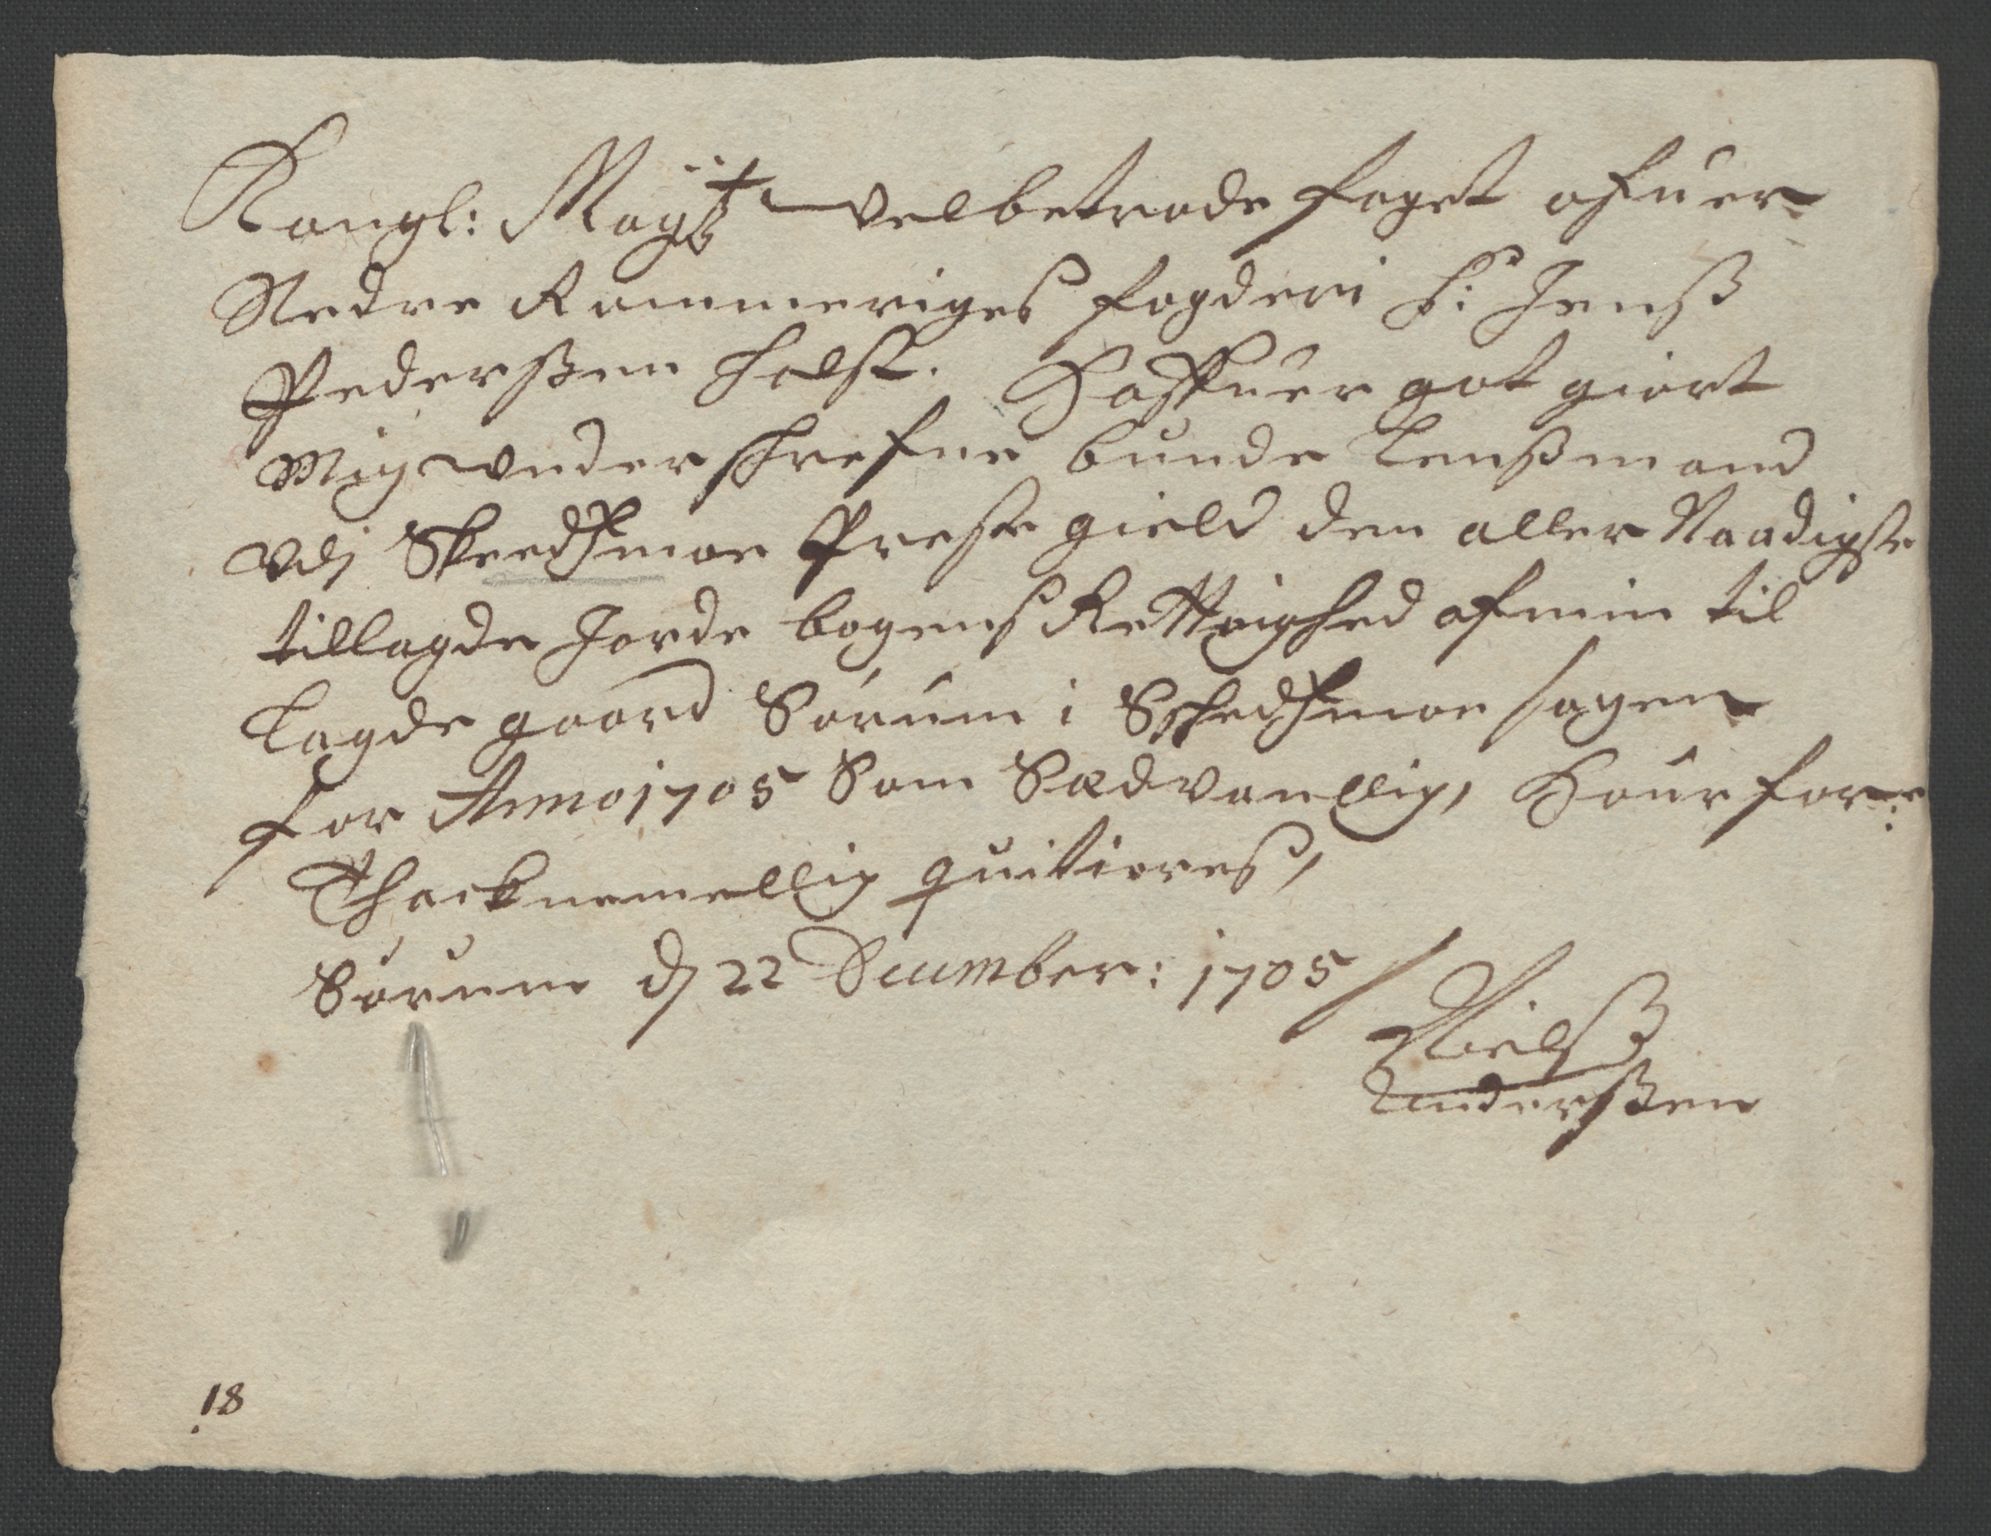 Kongl: Mayᵗˢ velbetrode foget ofuer
Nedre Rommeriges fogderi Sr: Jenß
Pederßen Holst. Haffuer got giort
Mig underschrefne bunde Lenßmand
udj Skeedsmoe Prestegield den aller Naadigste
tillagde Jorde bogens Rettighed af min til
Lagde gaard Sørum i Schedsmoe sogen
for Anno 1705 Som Sædvanllig, Hour for:
Thacknemellig quitieres,
Sørum d 22 December: 1705
Nielß
Anderßen
18